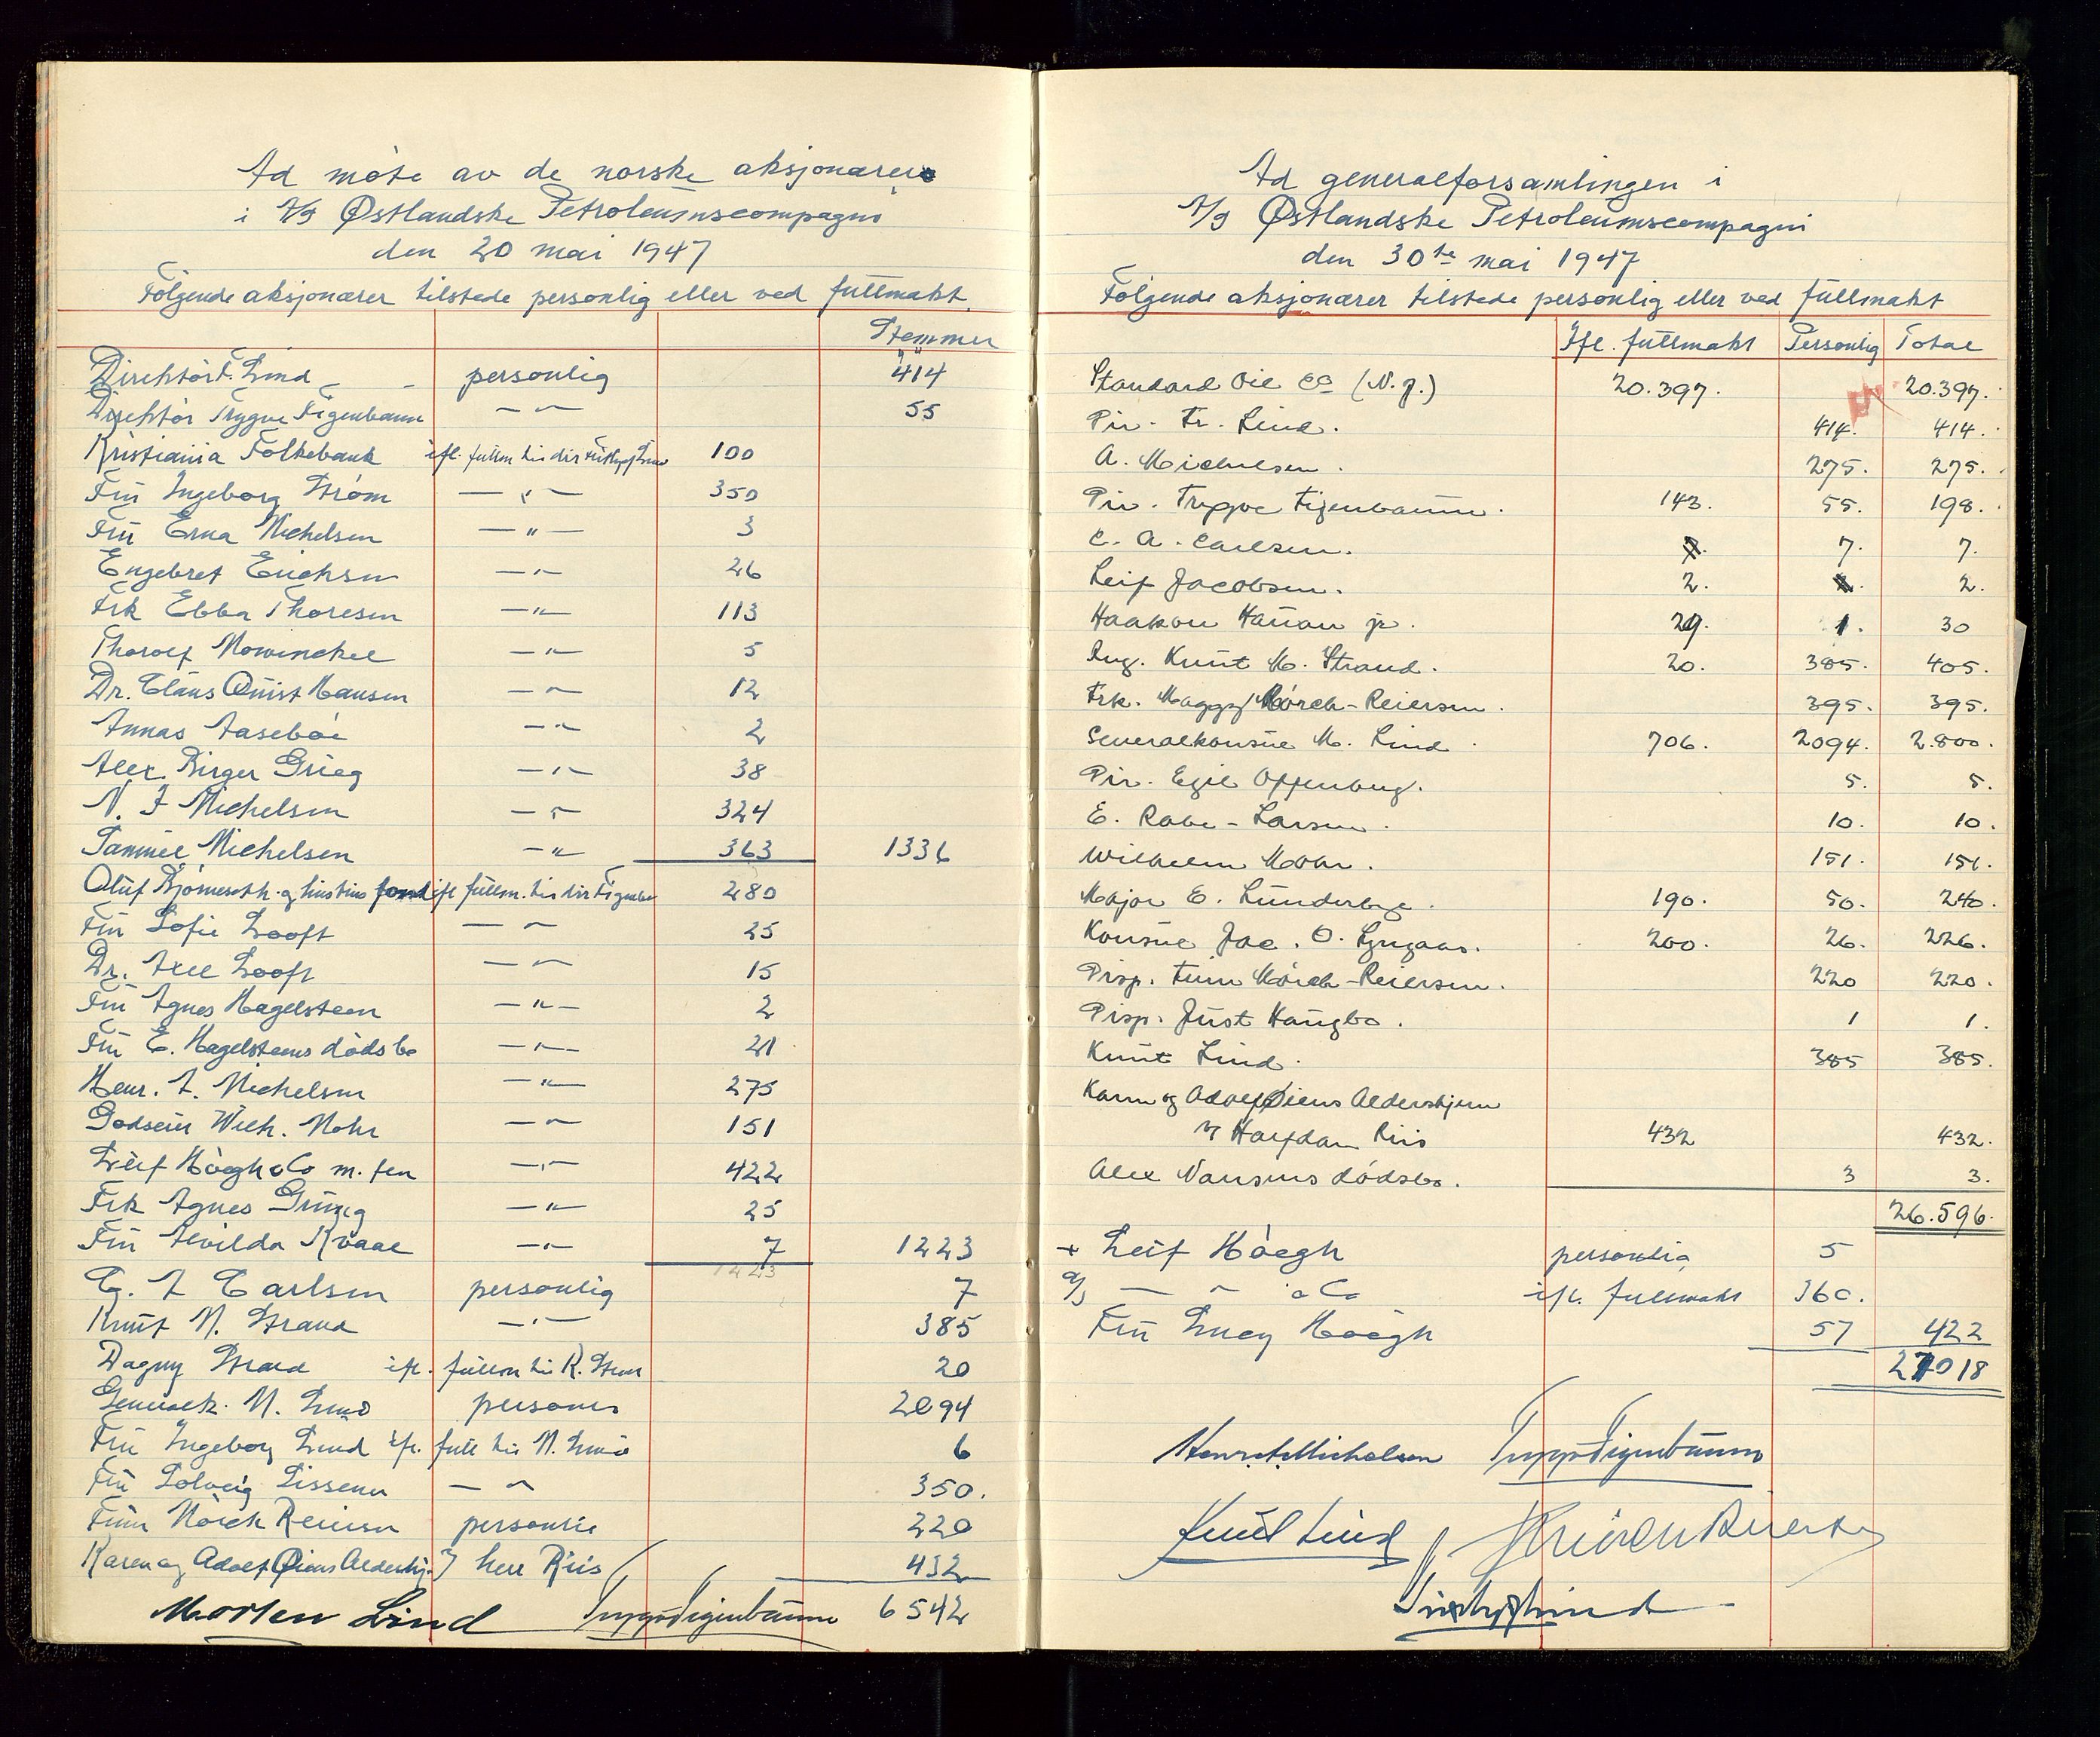 Ad møte av de norske aksjonærer
i A/S Østlandske Petroleumscompagni
den 20 mai 1947
Følgende aksjonærer tilstede personlig eller ved fullmakt.
Stemmer
Direktør F. Lind - - personlig 414
Direktør Trygve Figenbaum — " — 55
Kristiania Folkebank ifl. fullm. til dir Lind 100
Frü Ingeborg Strøm — " — 350
Frü Erna Michelsen — " — 3
Engebret Erichsen — " — 26
Frk Ebba Thoresen — " — 113
Thorolf Mowinckel — " — 5
Dr. Claus Quist Hansen — " — 12
Annas Aasebøe — " — 2
Alex. Birger Grieg — " — 38
N. J Michelsen — " — 324
Sammel Michelsen — " — 363 1336
Oluf Bjørneseth og hustrus fond ifl fullm. til dir Figenbaum 280
Frü Sofie Looft — " — 25
Dr. Axel Looft — " — 15
Frü Agnes Hagelsteen — " — 2
Frü E. Hagelsteens dødsbo — " — 21
Henr. A. Michelsen — " — 275
Godseier Wilh. Mohr — " — 151
Leif Höegh & Co m. fen — " — 422
Frk Agnes Grieg — " — 25
Frü Alvilda Kvaal — " — 7 1223
1223
C. A Carlsen personlig 7
Knüt M. Strand — " — 385
Dagny Strand ifl. fullm til K. Strand 20
Generalk. M. Lind personlig 2094
Frü Ingeborg Lind ifl. full til M. Lind 6
Frü Solveig Sissener — " — 350.
Finn Mörch Reiersen personlig 220
Karen og Adolf Øiens Aldershj. v/ herr Riis 432
Morten Lind Trygve Figenbaum 6542
Ad generalforsamlingen i
A/S Østlandske Petroleumscompagni
den 30te mai 1947
Følgende aksjonærer tilstede personlig eller ved fullmakt
Ifl. fullmakt Personlig Total
Standard Oil Co (N.J.) 20.397. 20.397.
Dir. Fr. Lind. 414. 414.
A. Michelsen. 275. 275.
Dir. Trygve Figenbaum. 143. 55. 198.
C. A. Carlsen. 7. 7.
Leif Jacobsen. 2. 2.
Haakon Hauan jr. 29. 1. 30
Ing. Knut M. Strand. 20. 385. 405.
Frk. Maggy Mörch-Reiersen. 395. 395.
Generalkonsul M. Lind. 706. 2094. 2.800.
Dir. Egil Offenberg. 5. 5.
E. Rabe-Larsen. 10. 10.
Wilhelm Mohr. 151. 151.
Major E. Lunderbye. 190. 50. 240.
Konsul Jac. O. Lyngaas. 200. 26. 226.
Disp. Finn Mörch-Reiersen. 220 220.
Disp. Just Haugbo. 1 1.
Knut Lind. 385 385.
Karen og Adolf Øiens Aldershjem
v/ Halfdan Riis 432 432.
Alex Nansens dødsbo. 3 3.
26.596.
+ Leif Höegh personlig 5
A/S — " — & Co ifl. fullmakt 360.
Frü Lucy Höegh 57 422
27018
Henr. A. Michelsen Trygve Figenbaum
Knut Lind